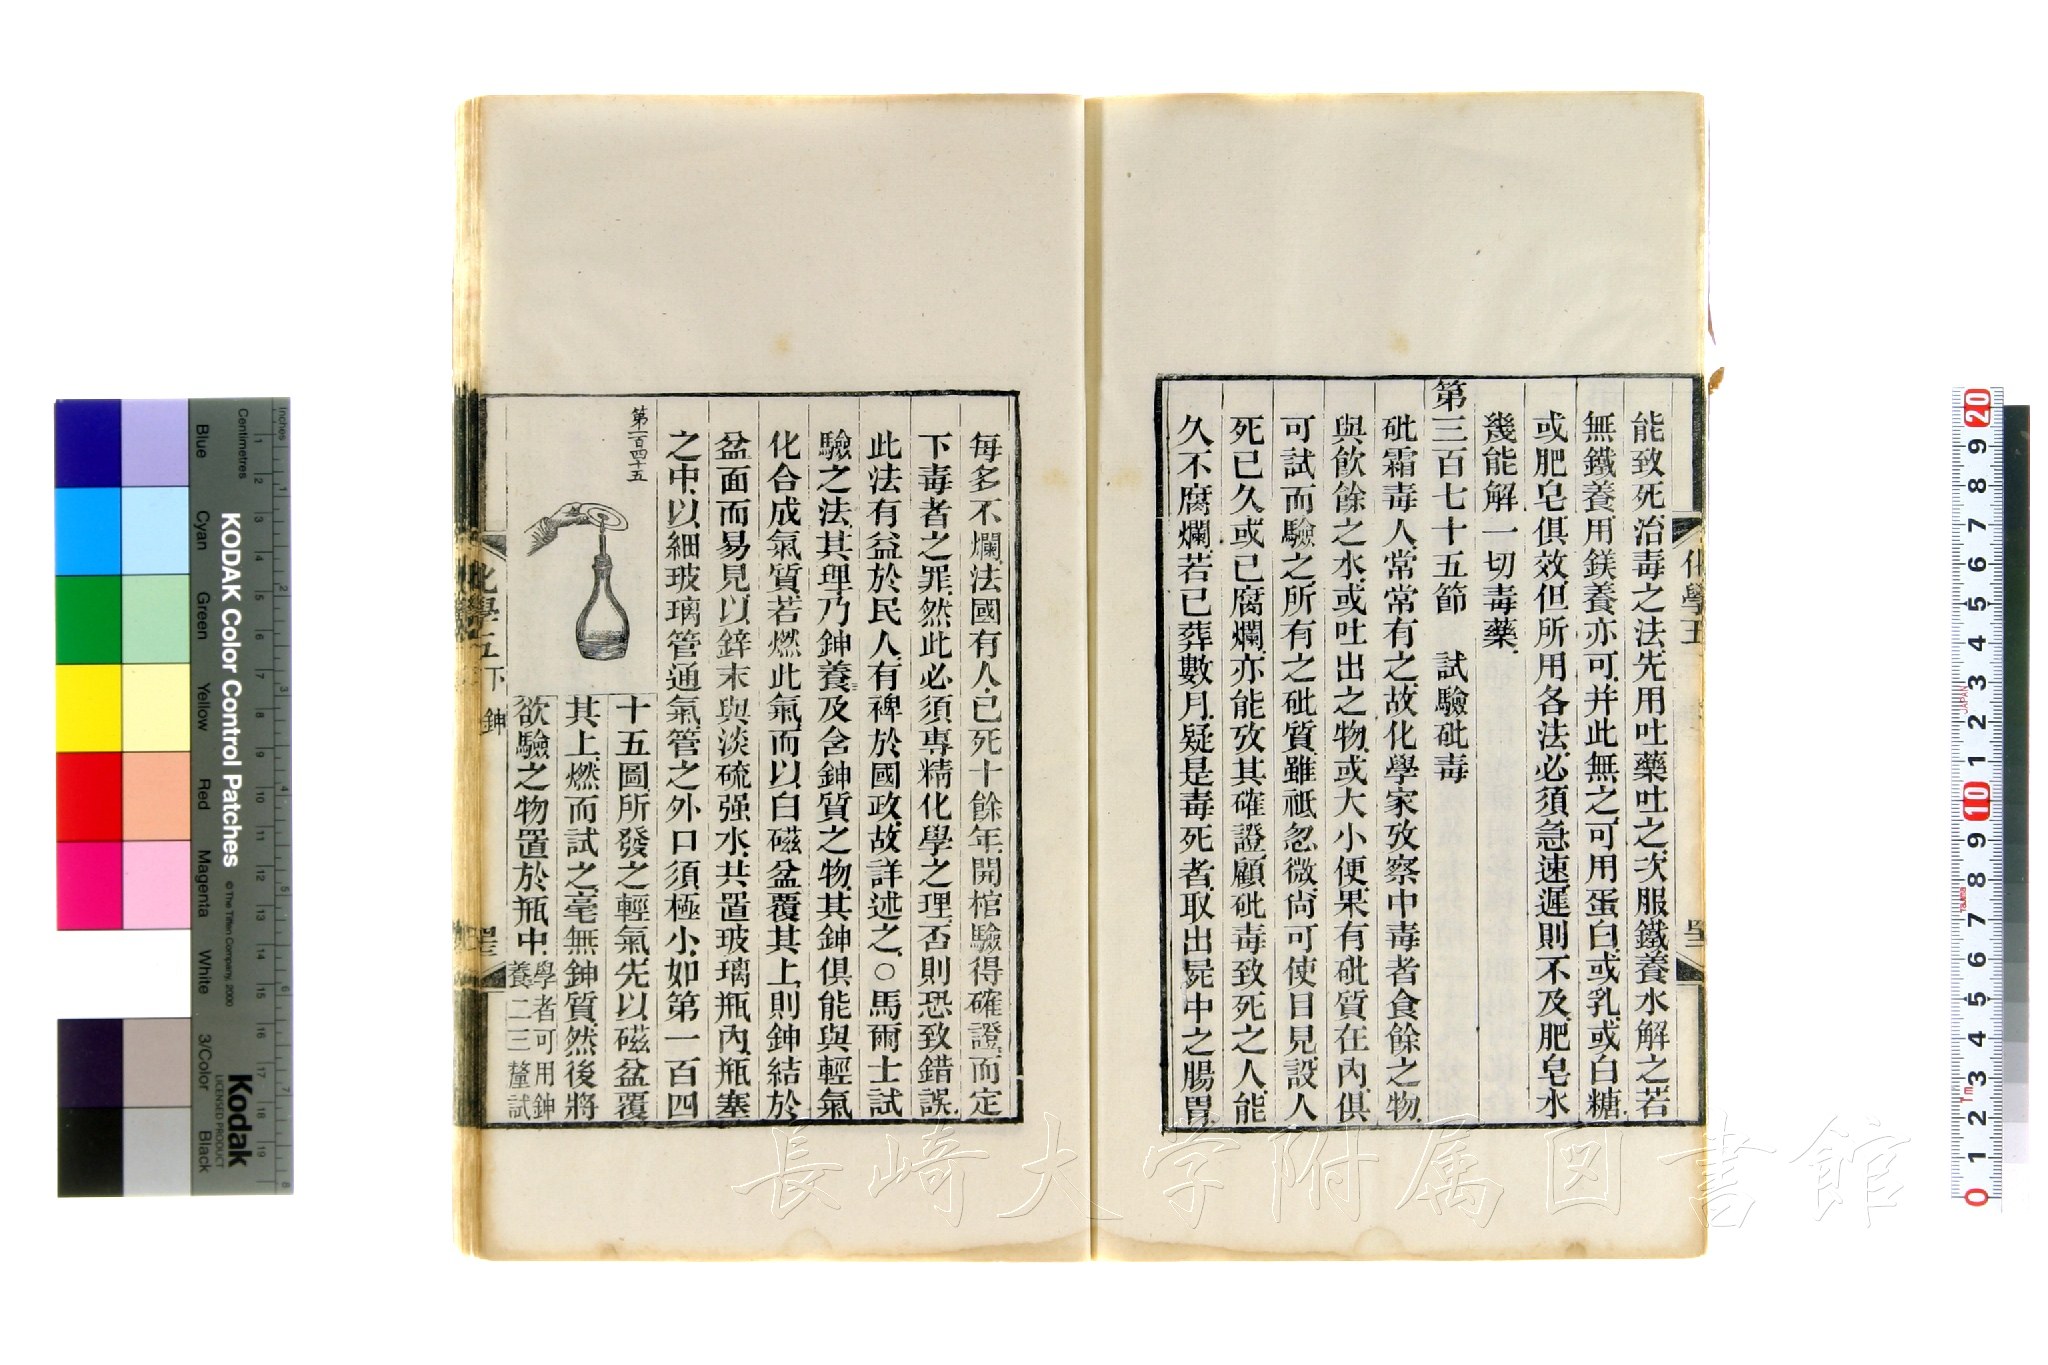 能致死、治毒之法、先用吐藥吐之、次服鐵養水解之、若
無鐵養、用鎂養亦可、并此無之、可用蛋白、或乳、或白糖、
或肥皂俱效、但所用各法、必須急速、遲則不及、肥皂水
幾能解一切毒藥、
第三百七十五節　試驗砒毒
砒霜毒人、常常有之、故化學家攷察中毒者食餘之物、
與飲餘之水、或吐出之物、或大小便、果有砒質在內、俱
可試而驗之、所有之砒質、雖祗忽微、尙可使目見、設人
死已久、或已腐爛、亦能攷其確證、顧砒毒致死之人、能
久不腐爛、若已葬數月、疑是毒死者、取出屍中之腸胃、
化學五
每多不爛、法國有人、已死十餘年、開棺驗得確證、而定
下毒者之罪、然此必須專精化學之理、否則恐致錯誤、
此法有益於民人、有裨於國政、故詳述之、○馬爾士試
驗之法、其理乃鉮養及含鉮質之物、其鉮俱能與輕氣
化合成氣質、若燃此氣、而以白磁盆覆其上、則鉮結於
盆面而易見、以鋅末與淡硫强水、共置玻璃瓶內、瓶塞
之中、以細玻璃管通氣、管之外口、須極小、如第一百四
第一百四十五
十五圖、所發之輕氣、先以磁盆覆
其上、燃而試之、毫無鉮質、然後將
欲驗之物置於瓶中、學者可用鉮
養二三釐試
化學五下　鉮
KODAK Color Control Patches
© The Tiffen Company, 2000
Kodak
LICENSED PRODUCT
Inches
Centimetres
Blue
Cyan
Green
Yellow
Red
Magenta
White
3/Color
Black
JAPAN
長崎大学附属図書館